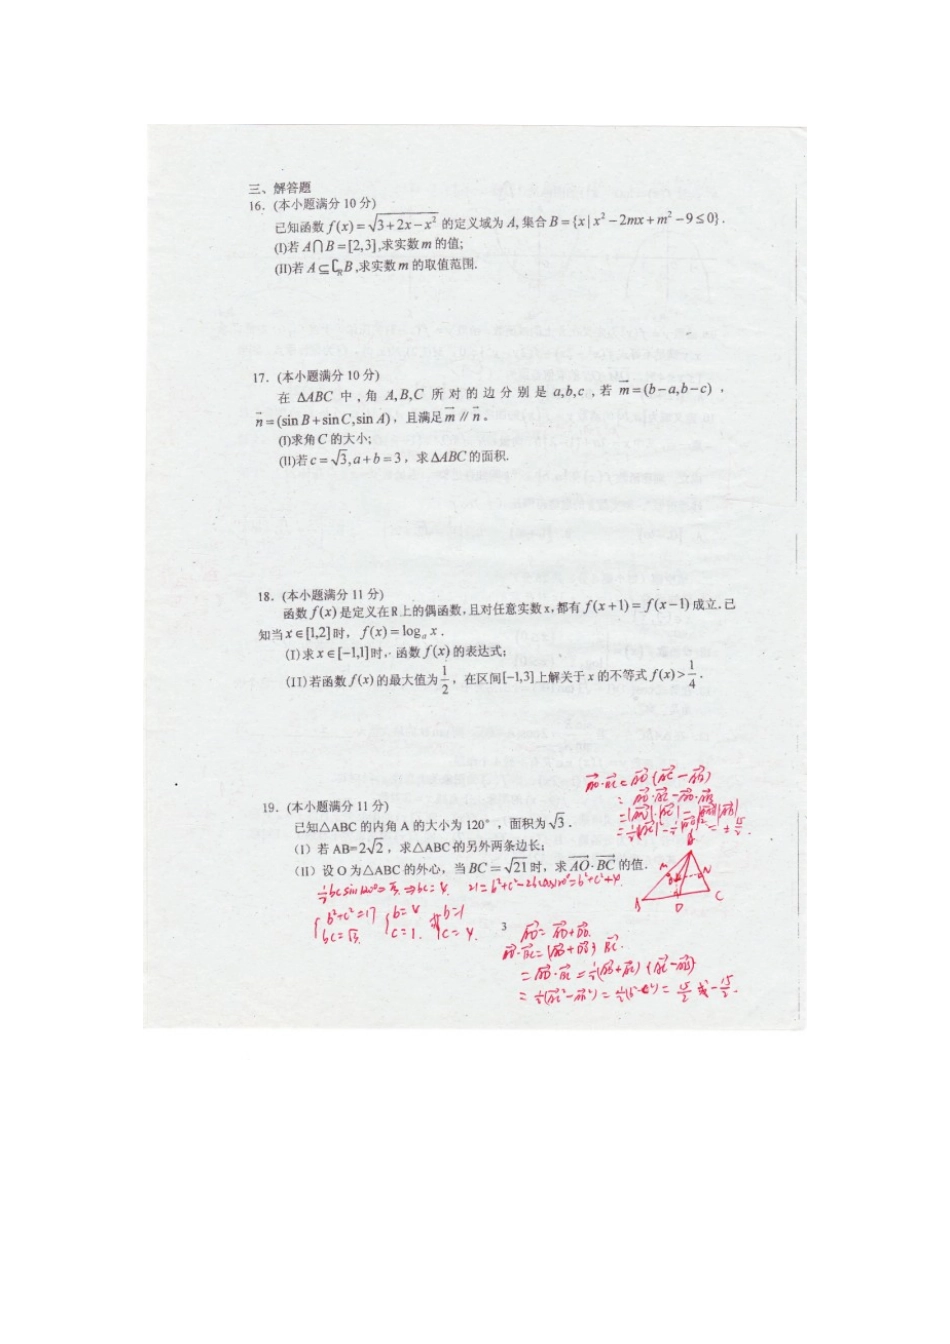 三、解答题
16.(本小题满分10分)
已知函数 f(x)=√(3+2x−x²) 的定义域为 A,集合 B={x|x²−2mx+m²−9≤0}.
(I)若 A∩B=[2,3],求实数 m 的值;
(II)若 A⊆∁RB,求实数 m 的取值范围.
17.(本小题满分10分)
在 △ABC 中,角 A,B,C 所对的边分别是 a,b,c,若 m⃗=(b−a,b−c),
n⃗=(sin B+sin C,sin A),且满足 m⃗∥n⃗。
(I)求角 C 的大小;
(II)若 c=√3,a+b=3,求△ABC 的面积.
18.(本小题满分11分)
函数 f(x) 是定义在R上的偶函数,且对任意实数x,都有 f(x+1)=f(x−1) 成立.已
知当 x∈[1,2] 时, f(x)=logₐ x.
(I)求 x∈[−1,1] 时,函数 f(x) 的表达式;
(II)若函数 f(x) 的最大值为 1/2,在区间[−1,3]上解关于 x 的不等式 f(x)>1/4.
19.(本小题满分11分)
已知△ABC 的内角 A 的大小为 120°,面积为√3.
(I)若 AB=2√2,求△ABC 的另外两条边长;
(II)设 O 为△ABC 的外心,当 BC=√21 时,求 AO⃗·BC⃗ 的值.
½bc sin120°=√3 ⇒bc=4. 21=b²+c²−2bccos120°=b²+c²+4
{b²+c²=17 {b=4 或{b=1
bc=√3 c=1. c=4.
3